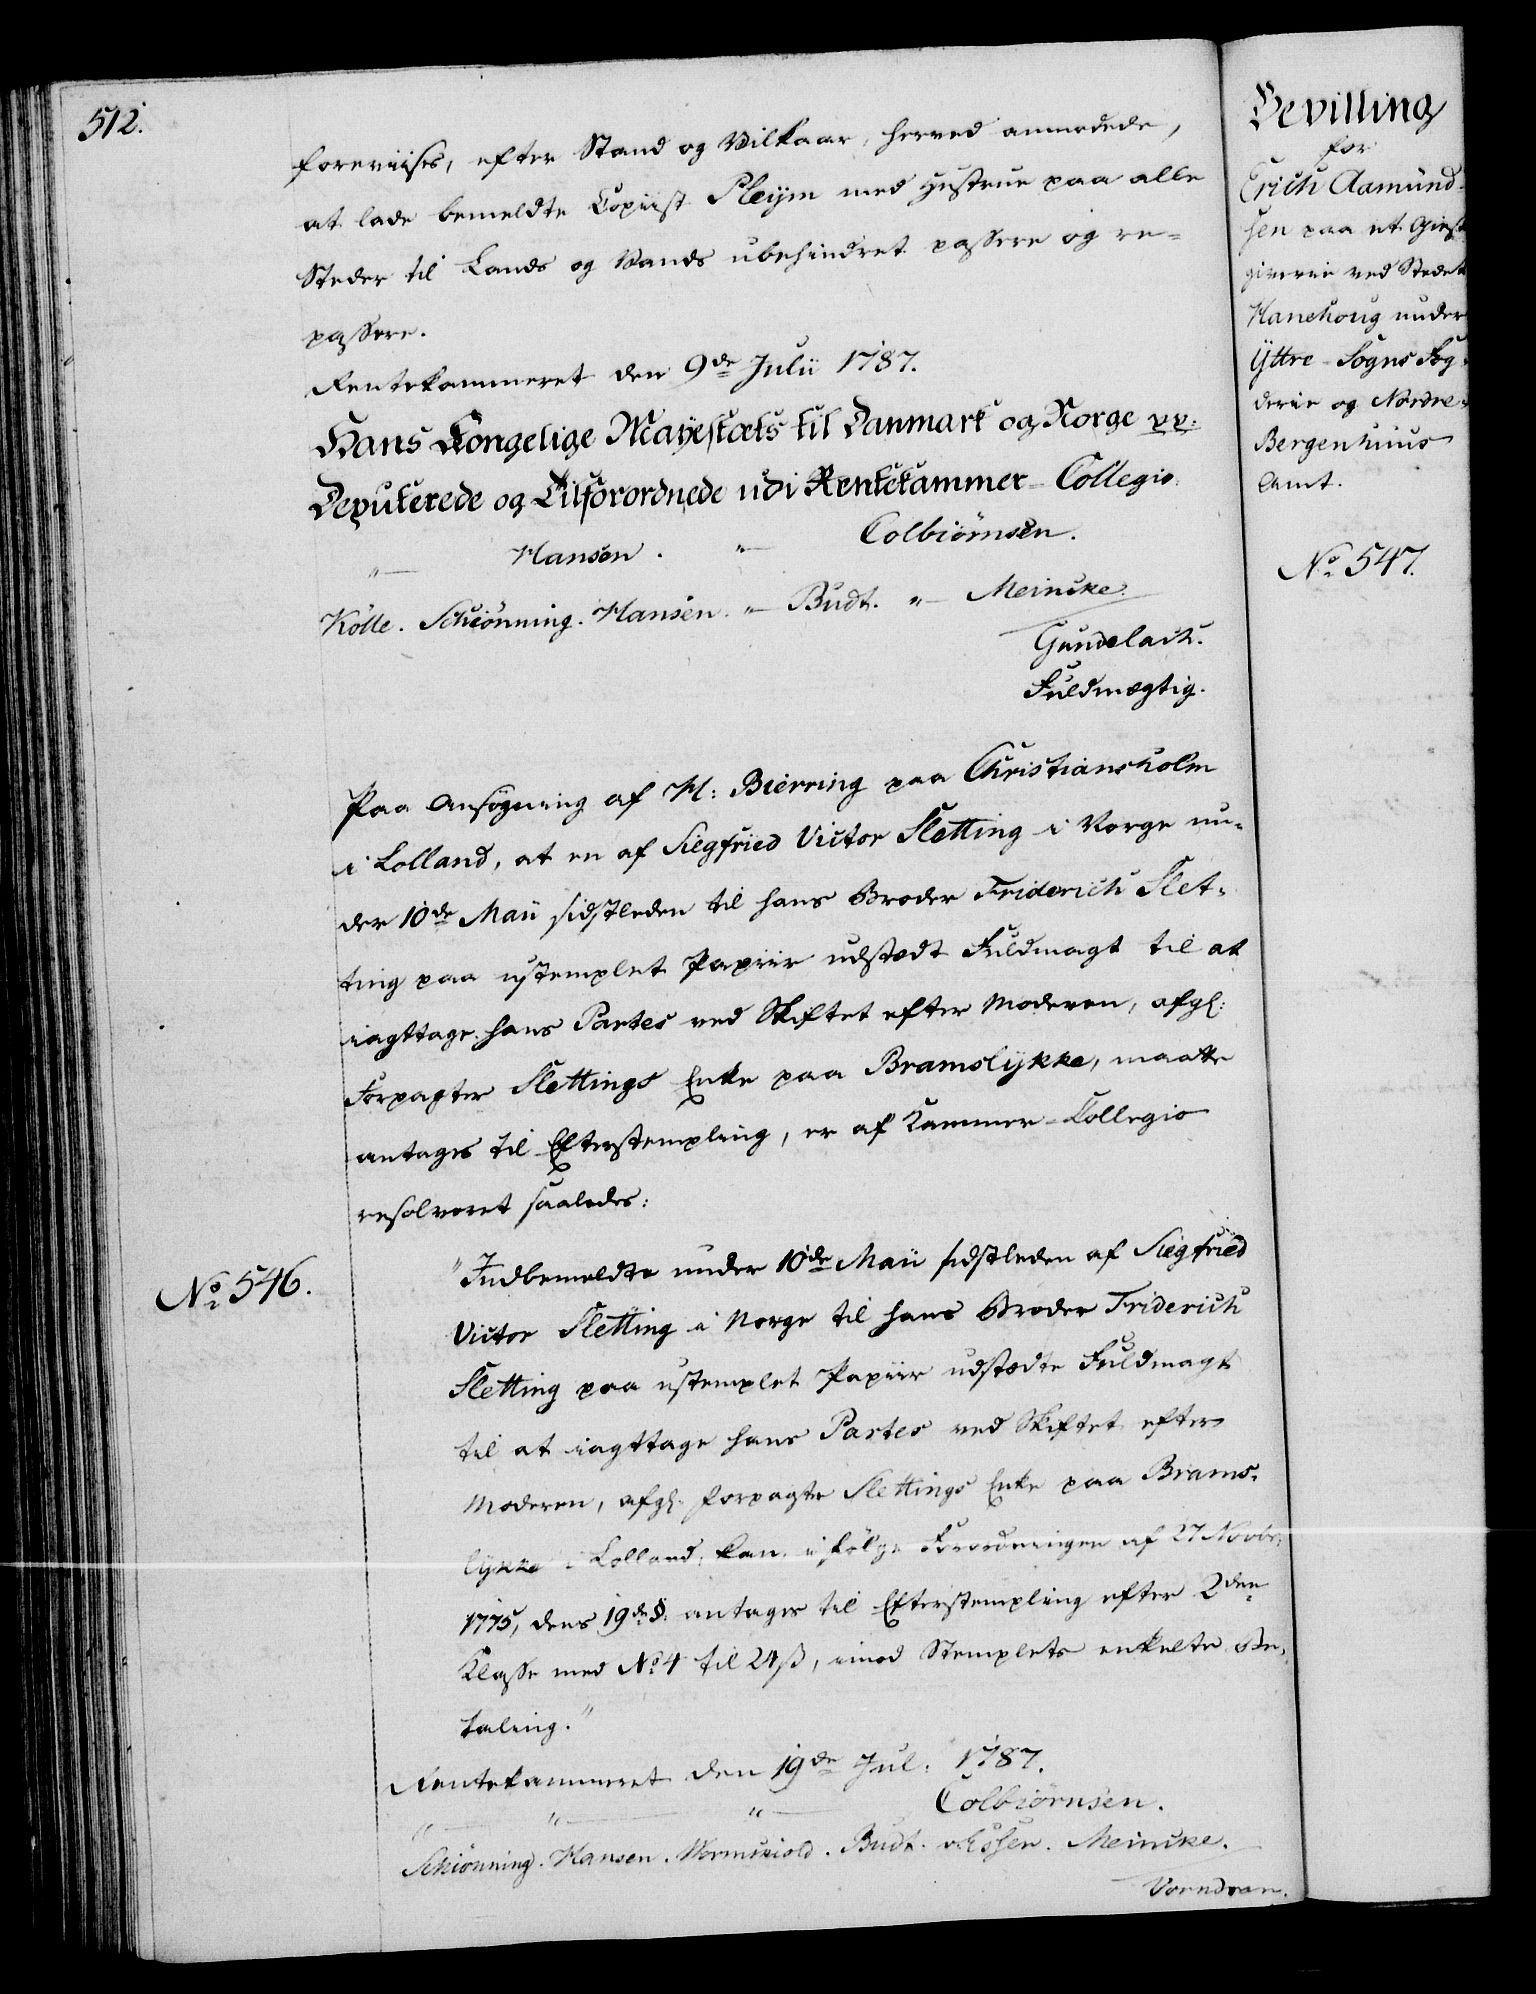 512.
foreviises, efter Stand og Vilkaar, herved anmodede,
at lade bemeldte Copiist Pleijm med Hustrue paa alle
Steder til Lands og Vands ubehindret passere og re=
passere.
Rentekammeret den 9de Julii 1787.
Hans Kongelige Mayestæts til Danmark og Norge pp:
Deputerede og Tilforordnede udi Rentekammer-Collegio.
"— Hansen. "— Colbiörnsen.
Kölle. Schiönning. Hansen. "— Budt. "— Meincke.
Gundelach.
Fuldmægtig.
Paa Ansøgning af H: Bierring paa Christiansholm
i Lolland, at en af Siegfried Victor Sletting i Norge un=
der 10de Maii sidstleden til hans Broder Friderich Slet=
ting paa ustemplet Papiir udstædt Fuldmagt til at
iagttage hans Partes ved Skiftet efter Moderen, afg:
Forpagter Slettings Enke paa Bramslykke, maatte
antages til Efterstempling, er af Kammer-Collegio
resolveret saaledes:
No 546.
"Indbemeldte under 10de Maii sidstleden af Siegfried
Victor Sletting i Norge til hans Broder Friderich
Sletting paa ustemplet Papiir udstædte Fuldmagt
til at iagttage hans Partes ved Skiftet efter
Moderen, afg: Forpagter Slettings Enke paa Brams=
lykke i Lolland, kan, ifølge Forordningen af 27 Novbr:
1775, dens 19de §. antages til Efterstempling efter 2den
Klasse med No 4 til 24 ß, imod Stemplets enkelte Be=
taling."
Rentekammeret den 19de Jul: 1787.
"— "— "— Colbiörnsen.
Schiönning. Hansen. Wormskiold. Budt. v. Essen. Meincke.
Vorndran.
Bevilling
for
Erich Aamund=
sen paa et Giest=
giverie ved Stedet
Hanehoug under
Yttre-Sogns Fog=
derie og Nordre=
Bergenhuus
Amt.
No 547.